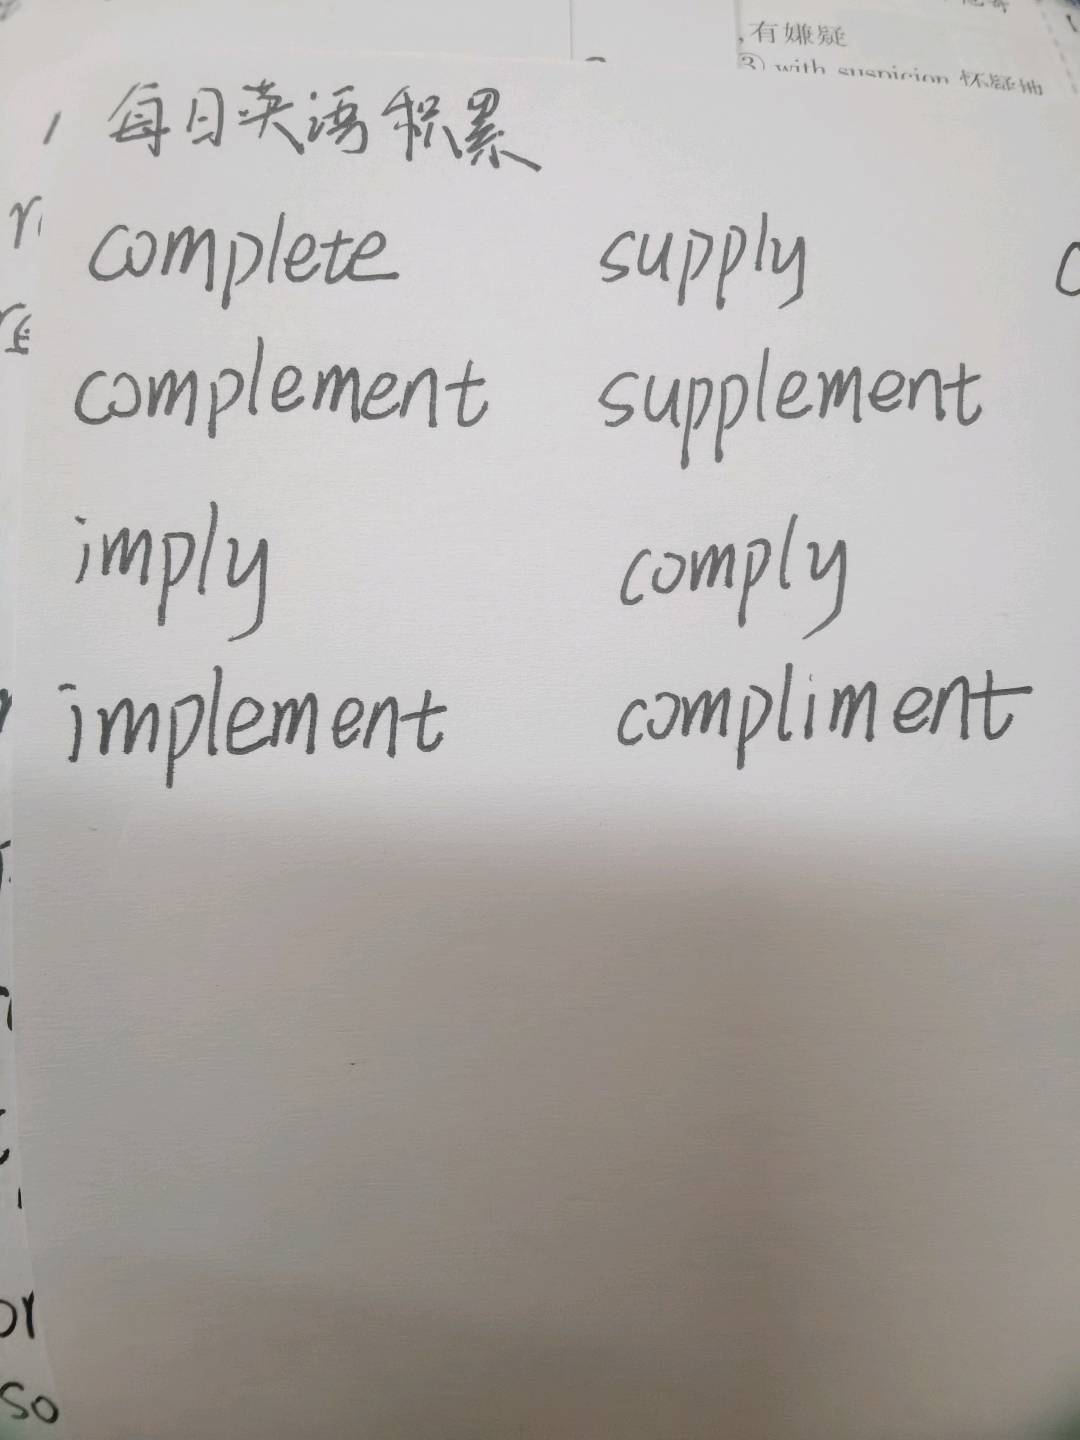 ,有嫌疑
③ with suspicion 怀疑地
每日英语积累
complete supply
complement supplement
imply comply
implement compliment
or
so